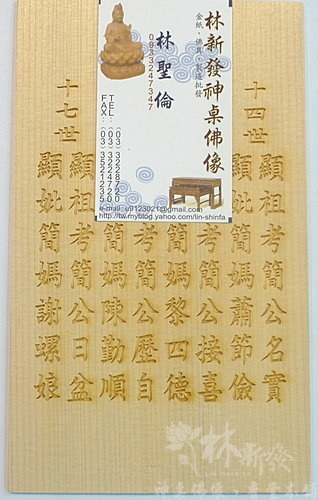 林新發神桌佛像
金紙、佛具、製造批發
林聖倫
0933247347
TEL：(03) 3228720
FAX：(03) 3221235
http://tw.myblog.yahoo.com/lin-shinfa
十四世
顯祖考簡公名實
顯妣簡媽蕭節儉
考簡公接喜
簡媽黎四德
考簡公歷自
簡媽陳勤順
十七世
顯祖考簡公日盆
顯妣簡媽謝螺娘
林新發